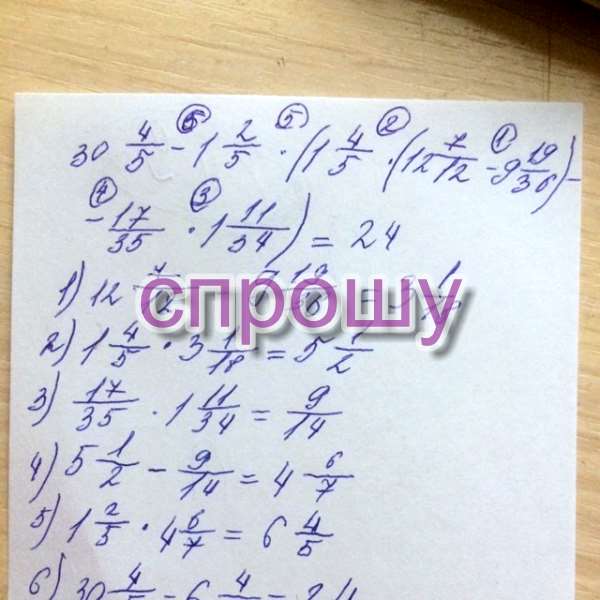 ⑥ ⑤ ②  ①
30 4/5 - 1 2/5 · (1 4/5 · (12 7/12 - 9 19/36) -
④ ③
- 17/35 · 1 11/34) = 24
1) 12
спрошу
2) 1 4/5 · 3 1/18 = 5 1/2
3) 17/35 · 1 11/34 = 9/14
4) 5 1/2 - 9/14 = 4 6/7
5) 1 2/5 · 4 6/7 = 6 4/5
6) 30 4/5 - 6 4/5 = 24